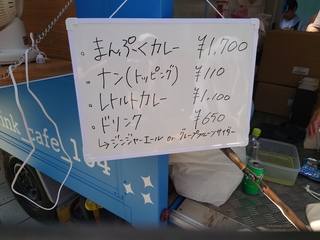 ・まんぷくカレー ¥1,700
・ナン(トッピング) ¥110
・レトルトカレー ¥1,100
・ドリンク ¥650
↳ジンジャーエール or グレープフルーツサイダー
ink_cafe_104